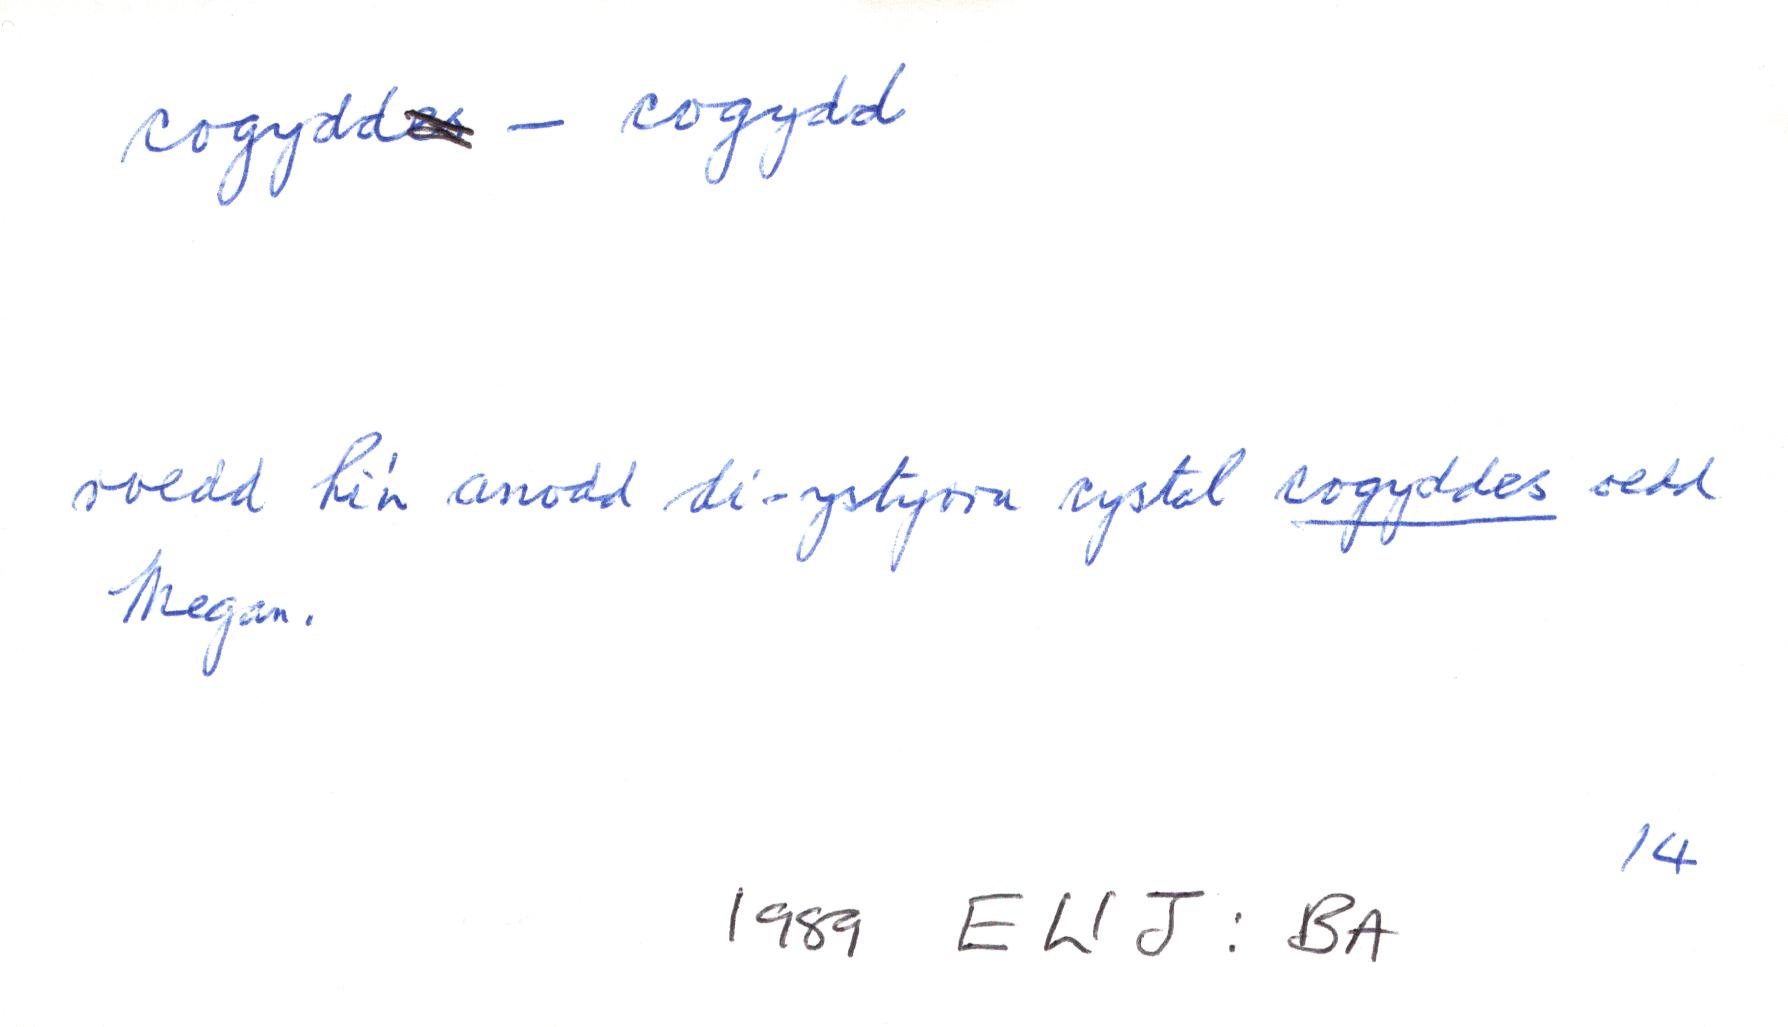 cogyddes – cogydd
roedd hi'n anodd di-ystyru cystal cogyddes oedd
Megan.
14
1989 E Ll J : BA